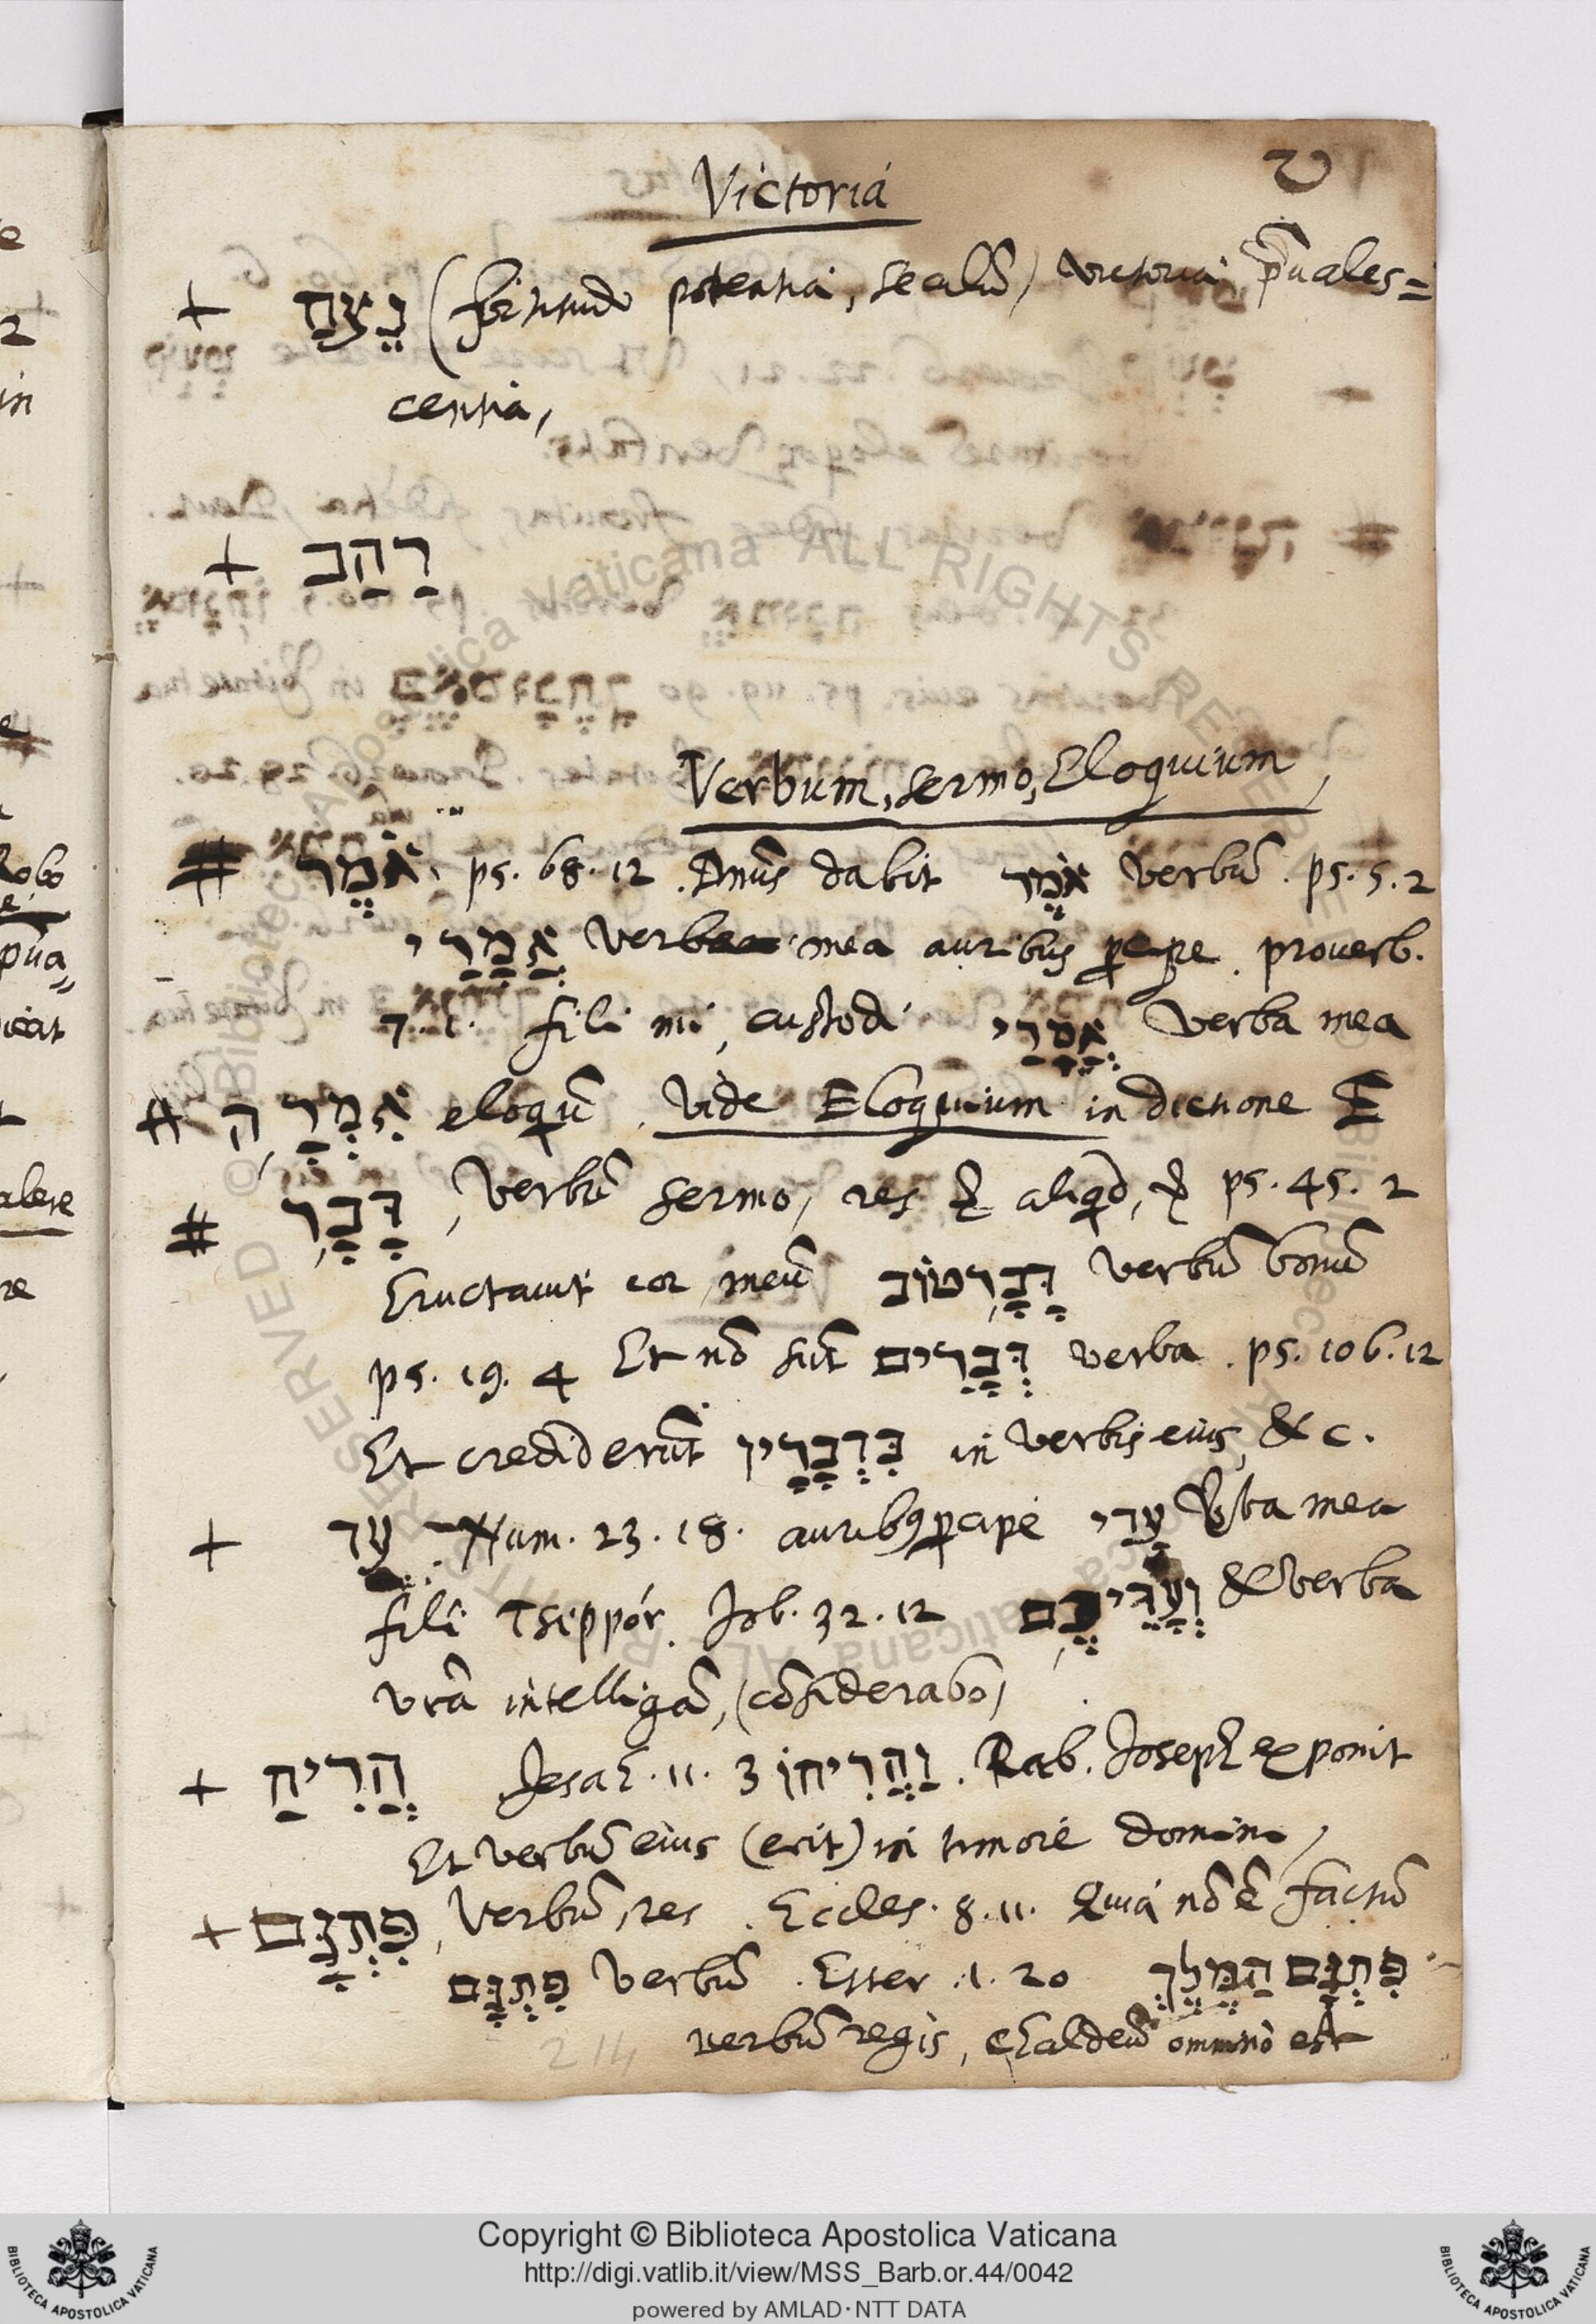 Victoria
+ נֶצַח (fortitudo potentia, seculũ) victoria, p̃uales=
centia,
+ רַהַב
Verbum, sermo, Eloquium,
# אֹמֶר ps. 68. 12. Dnũs dabit אֹמֶר verbũ. ps. 5. 2
אֲמָרַי verba mea auribus ꝑcipe. prouerb.
7. 1. fili mi, custodi אֲמָרַי verba mea
# אִמְרָה eloqũ. vide Eloquium in dictione E
# דָּבָר, verbũ sermo, res aliqd, ps. 45. 2
Eructauit cor meũ דָּבָר טוֹב verbũ bonũ
ps. 19. 4 Et nõ sũt דְּבָרִים verba. ps. 106. 12
Et crediderũt בִּדְבָרָיו in verbis eius, &c.
+ עֵד. Num. 23. 18. auribꝰ ꝑcipe עָדַי mea
fili Tseppór. Job. 32. 12 וְעָדֵיכֶם & verba
vrã intelligã, (cõsiderabo)
+ הֲרִיחַ Jesaꝉ. 11. 3 וַהֲרִיחוֹ. Rab. Joseph exponit
Et verbũ eius (erit) in timore domini,
+ פִּתְגָּם, verbũ, res. Eccles. 8. 11. Quia nõ ẽ factũ
פִּתְגָּם verbũ. Ester. 1. 20 פִּתְגָּם הַמֶּלֶךְ
verbũ regis, chaldeũ omninò est
214
Copyright © Biblioteca Apostolica Vaticana
http://digi.vatlib.it/view/MSS_Barb.or.44/0042
powered by AMLAD·NTT DATA
BIBLIOTECA APOSTOLICA VATICANA
BIBLIOTECA APOSTOLICA VATICANA